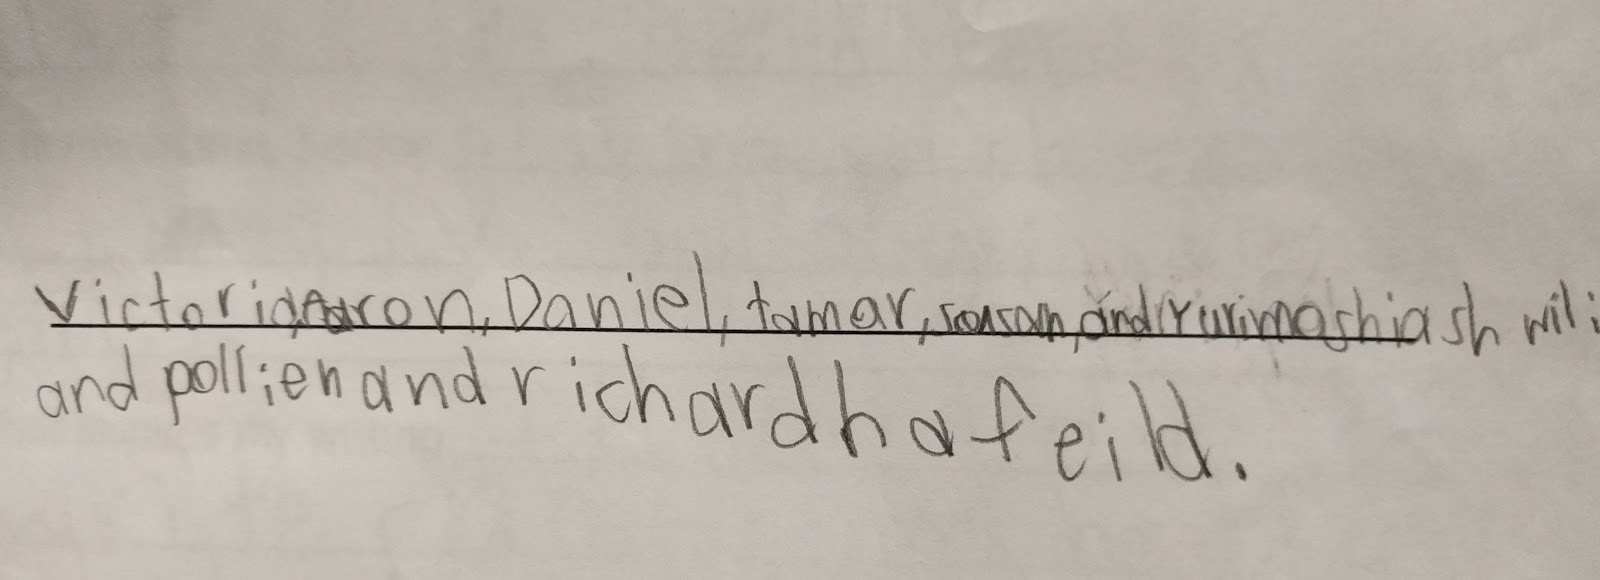 Victoria, Aaron, Daniel, tamar, and Yuri moshiash wil
and pollien and richard hafeild.